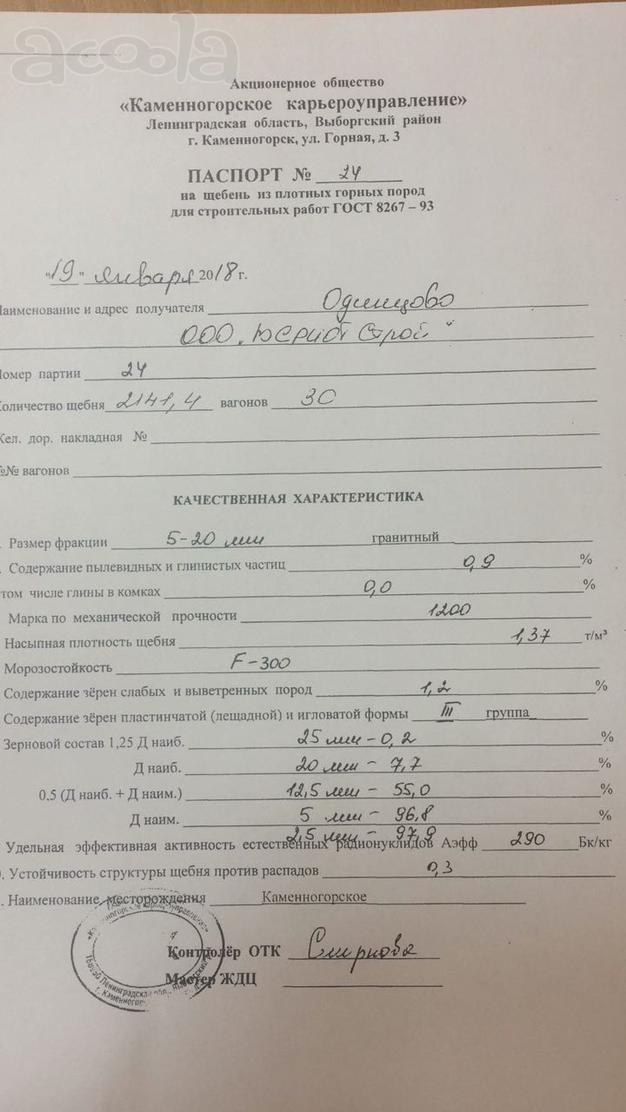 acoola
Акционерное общество
«Каменногорское карьероуправление»
Ленинградская область, Выборгский район
г. Каменногорск, ул. Горная, д. 3
ПАСПОРТ № 24
на щебень из плотных горных пород
для строительных работ ГОСТ 8267 – 93
"19" января 2018 г.
Наименование и адрес получателя Одинцово
ООО Строй"
Номер партии 24
Количество щебня 2141,4 вагонов 30
Жел. дор. накладная №
№№ вагонов
КАЧЕСТВЕННАЯ ХАРАКТЕРИСТИКА
Размер фракции 5-20 мм гранитный
Содержание пылевидных и глинистых частиц 0,9 %
том числе глины в комках 0,0 %
Марка по механической прочности 1200
Насыпная плотность щебня 1,37 т/м³
Морозостойкость F-300
Содержание зёрен слабых и выветренных пород 1,2 %
Содержание зёрен пластинчатой (лещадной) и игловатой формы III группа
Зерновой состав 1,25 Д наиб. 25 мм - 0,2 %
Д наиб. 20 мм - 7,7 %
0,5 (Д наиб. + Д наим.) 12,5 мм - 55,0 %
Д наим. 5 мм - 96,8 %
2,5 мм - 97,9
Удельная эффективная активность естественных радионуклидов Аэфф 290 Бк/кг
Устойчивость структуры щебня против распадов 0,3
Наименование месторождения Каменногорское
Контролёр ОТК Смирнова
Мастер ЖДЦ